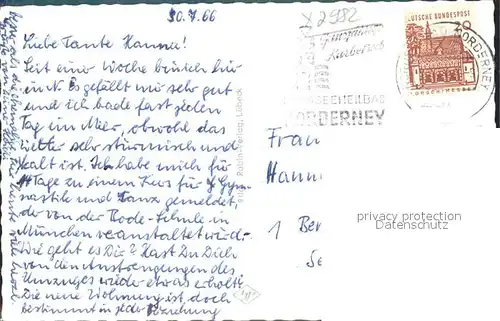 30.7.66
X 2982
Liebe Tante Hanna!
Seit eine Woche bin ich hier
in N. Es gefällt mir sehr gut
und ich bade fast jeden
Tag im Meer, obwohl das
Wetter sehr stürmisch und
kalt ist. Ich habe mich für
14 Tage zu einem Kurs für Gym-
nastik und Tanz gemeldet,
der von der Bode-Schule in
München veranstaltet wird.
Wie geht es Dir? Hast Du Dich
von den Anstrengungen des
Umzuges wieder etwas erholt?
Die neue Wohnung ist doch
bestimmt in jeder Beziehung
Rubin-Verlag, Lübeck
DEUTSCHE BUNDESPOST
20
NORDERNEY
NORDSEEHEILBAD
NORDERNEY
Frau
Hann
1 Ber
privacy protection
Datenschutz